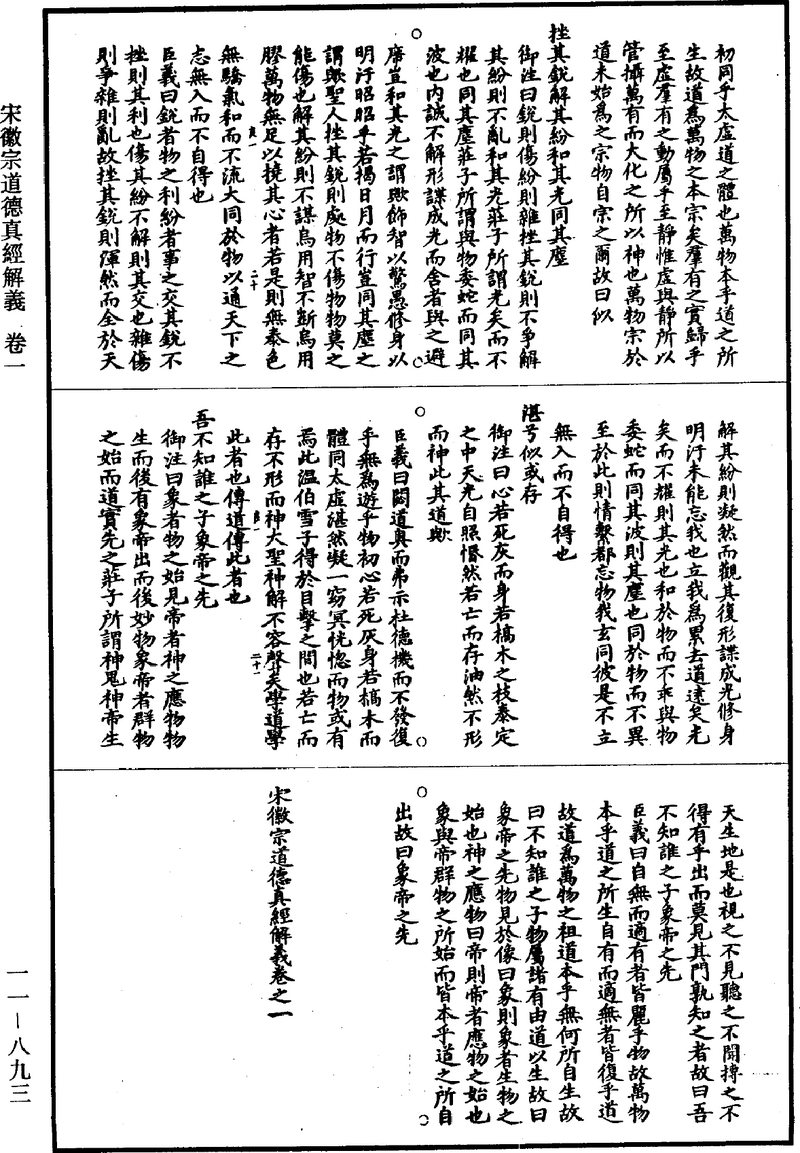 宋徽宗道德真經解義　卷一
初同乎太虛道之體也萬物本乎道之所
生故道為萬物之本宗矣羣有之實歸乎
至虛羣有之動屬乎至靜惟虛與靜所以
管攝萬有而大化之所以神也萬物宗於
道未始為之宗物自宗之爾故曰似
挫其銳解其紛和其光同其塵
御注曰銳則傷紛則雜挫其銳則不爭解
其紛則不亂和其光莊子所謂光矣而不
耀也同其塵莊子所謂與物委蛇而同其
波也內誠不解形諜成光而舍者與之避
席豈和其光之謂歟飾智以驚愚修身以
明汙昭昭乎若揭日月而行豈同其塵之
謂歟聖人挫其銳則處物不傷物物莫之
能傷也解其紛則不謀烏用智不斷烏用
膠萬物無足以撓其心者若是則無泰色
無驕氣和而不流大同於物以通天下之
志無入而不自得也
臣義曰銳者物之利紛者事之交其銳不
挫則其利也傷其紛不解則其交也雜傷
則爭雜則亂故挫其銳則渾然而全於天
良一
二十
解其紛則凝然而觀其復形諜成光修身
明汙未能忘我也立我為累去道遠矣光
矣而不耀則其光也和於物而不乖與物
委蛇而同其波則其塵也同於物而不異
至於此則情繫都忘物我玄同彼是不立
無入而不自得也
湛兮似或存
御注曰心若死灰而身若槁木之枝泰定
之中天光自照惛然若亡而存油然不形
而神此其道歟
臣義曰闢道奧而弗示杜德機而不發復
乎無為遊乎物初心若死灰身若槁木而
體同太虛湛然凝一窈冥恍惚而物或有
焉此溫伯雪子得於目擊之間也若亡而
存不形而神大聖神解不容聲矣學道學
此者也傳道傳此者也
吾不知誰之子象帝之先
御注曰象者物之始見帝者神之應物物
生而後有象帝出而後妙物象帝者群物
之始而道實先之莊子所謂神鬼神帝生
良一
二十一
天生地是也視之不見聽之不聞搏之不
得有乎出而莫見其門孰知之者故曰吾
不知誰之子象帝之先
臣義曰自無而適有者皆麗乎物故萬物
本乎道之所生自有而適無者皆復乎道
故道為萬物之祖道本乎無何所自生故
曰不知誰之子物屬諸有由道以生故曰
象帝之先物見於像曰象則象者生物之
始也神之應物曰帝則帝者應物之始也
象與帝群物之所始而皆本乎道之所自
出故曰象帝之先
宋徽宗道德真經解義卷之一
一一－八九三